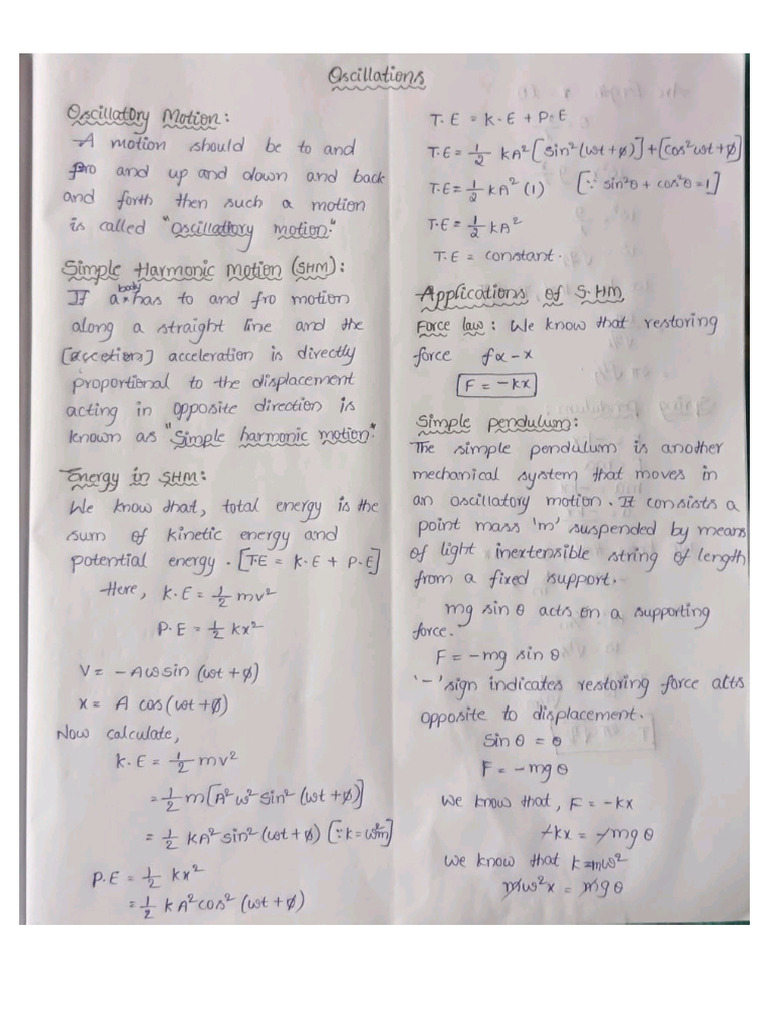 Oscillations
Oscillatory Motion:
A motion should be to and
fro and up and down and back
and forth then such a motion
is called "Oscillattory motion."
Simple Harmonic Motion (SHM):
If a body has to and fro motion
along a straight line and the
[accetion] acceleration is directly
proportional to the displacement
acting in opposite direction is
known as "Simple harmonic motion"
Energy in SHM:
We know that, total energy is the
sum of kinetic energy and
potential energy. [T.E = K.E + P.E]
Here, K.E = 1/2 mv²
P.E = 1/2 kx²
V = -Aω sin (ωt + ϕ)
x = A cos(ωt + ϕ)
Now calculate,
K.E = 1/2 mv²
= 1/2 m[A²ω² sin² (ωt + ϕ)]
= 1/2 KA² sin² (ωt + ϕ) [∵ k = ω²m]
P.E = 1/2 kx²
= 1/2 KA² cos² (ωt + ϕ)
T.E = K.E + P.E
T.E = 1/2 KA² [sin² (ωt + ϕ)] + [cos² ωt + ϕ]
T.E = 1/2 KA² (1) [∵ sin²θ + cos²θ = 1]
T.E = 1/2 KA²
T.E = constant.
Applications of S.HM
Force law: We know that restoring
force f ∝ -x
F = -kx
Simple pendulum:
The simple pendulum is another
mechanical system that moves in
an oscillatory motion. It consists a
point mass 'm' suspended by means
of light inextensible string of length
from a fixed support.
mg sin θ acts on a supporting
force.
F = -mg sin θ
'-' sign indicates restoring force acts
opposite to displacement.
Sin θ = θ
F = -mg θ
We know that, F = -kx
-kx = -mg θ
We know that k = mω²
mω²x = mg θ